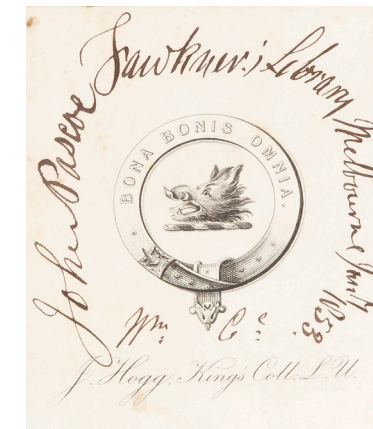 John Pascoe Fawkner's Library Melbourne 1853
BONA BONIS OMNIA.
Wm
J. Hogg, King's Coll. L. U.